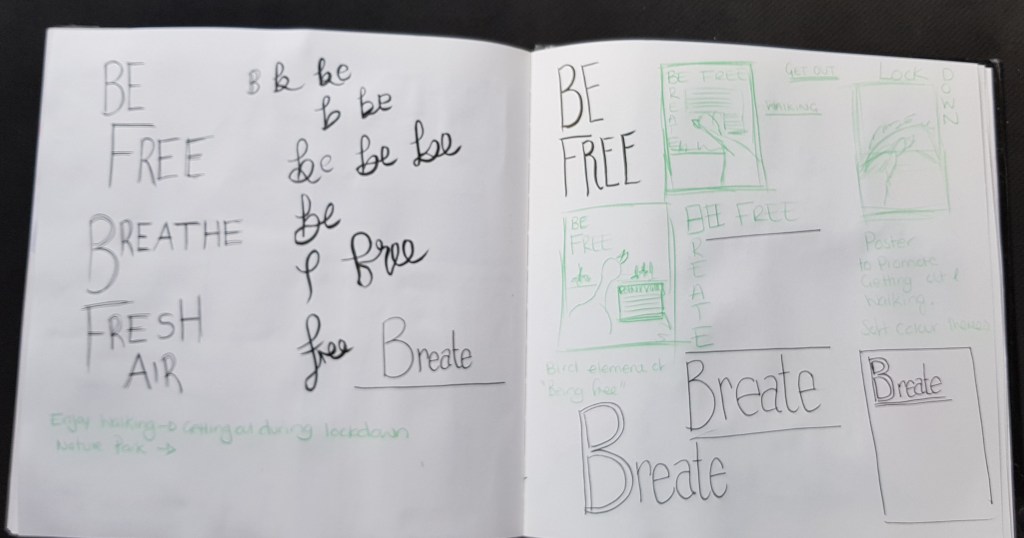 BE
FREE
BREATHE
FRESH
AIR
B b be
b be
be be be
Be
free
free
Breate
Enjoy walking → Getting out during lockdown
Nature Park →
BE
FREE
BE FREE
GET OUT
WALKING
LOCK
DOWN
BE
FREE
BE FREE
REATE
Poster
to Promote
Getting out &
walking.
Soft colour themes
Bird element of
"Being free"
Breate
Breate
Breate